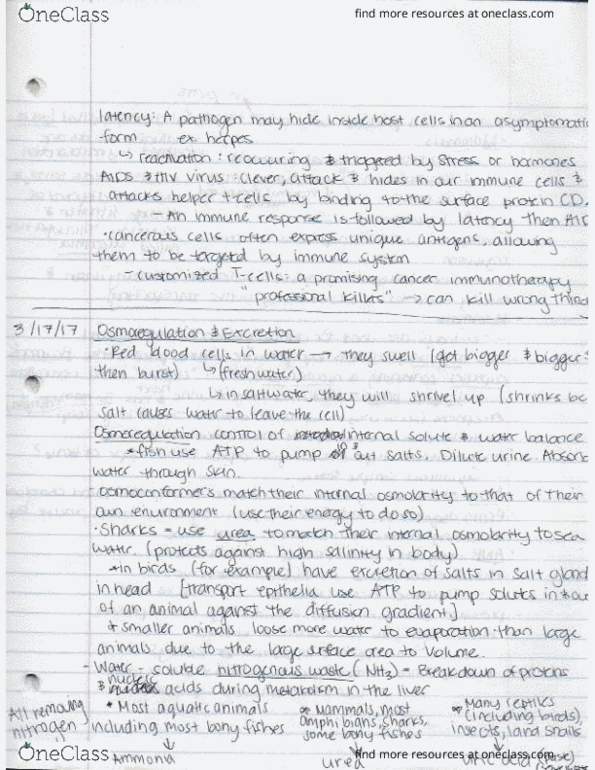 OneClass
find more resources at oneclass.com
latency: A pathogen may hide inside host cells in an asymptomatic
form ex. herpes
↳ reactivation: reoccuring & triggered by stress or hormones
AIDS & HIV virus: clever, attack & hides in our immune cells &
attacks helper t-cells by binding to the surface protein CD.
- An immune response is followed by latency then AIDS
·cancerous cells often express unique antigens, allowing
them to be targeted by immune system
- customized T-cells: a promising cancer immunotherapy
"professional killers" → can kill wrong thing
3/17/17 Osmoregulation & Excretion
·Red blood cells in water → they swell (get bigger & bigger
then burst) ↳ (freshwater)
↳ in saltwater, they will shrivel up (shrinks bc
salt causes water to leave the cell)
Osmoregulation control of internal solute & water balance
*fish use ATP to pump out salts. Dilute urine. Absorb
water through skin.
osmoconformers match their internal osmolarity to that of their
own environment (use their energy to do so)
·Sharks - use urea to match their internal osmolarity to sea
water. (protects against high salinity in body)
*in birds (for example) have excretion of salts in salt gland
in head [transport epithelia use ATP to pump solutes in & out
of an animal against the diffusion gradient.]
* smaller animals loose more water to evaporation than large
animals due to the large surface area to volume.
- Water - soluble nitrogenous waste (NH3) = Breakdown of proteins
& nucleic acids during metabolism in the liver
All removing nitrogen
* Most aquatic animals
including most bony fishes
↓
Ammonia
* Mammals, most
amphibians, sharks,
some bony fishes
↓
urea
* Many reptiles
(including birds),
insects, land snails
↓
uric acid
OneClass
find more resources at oneclass.com